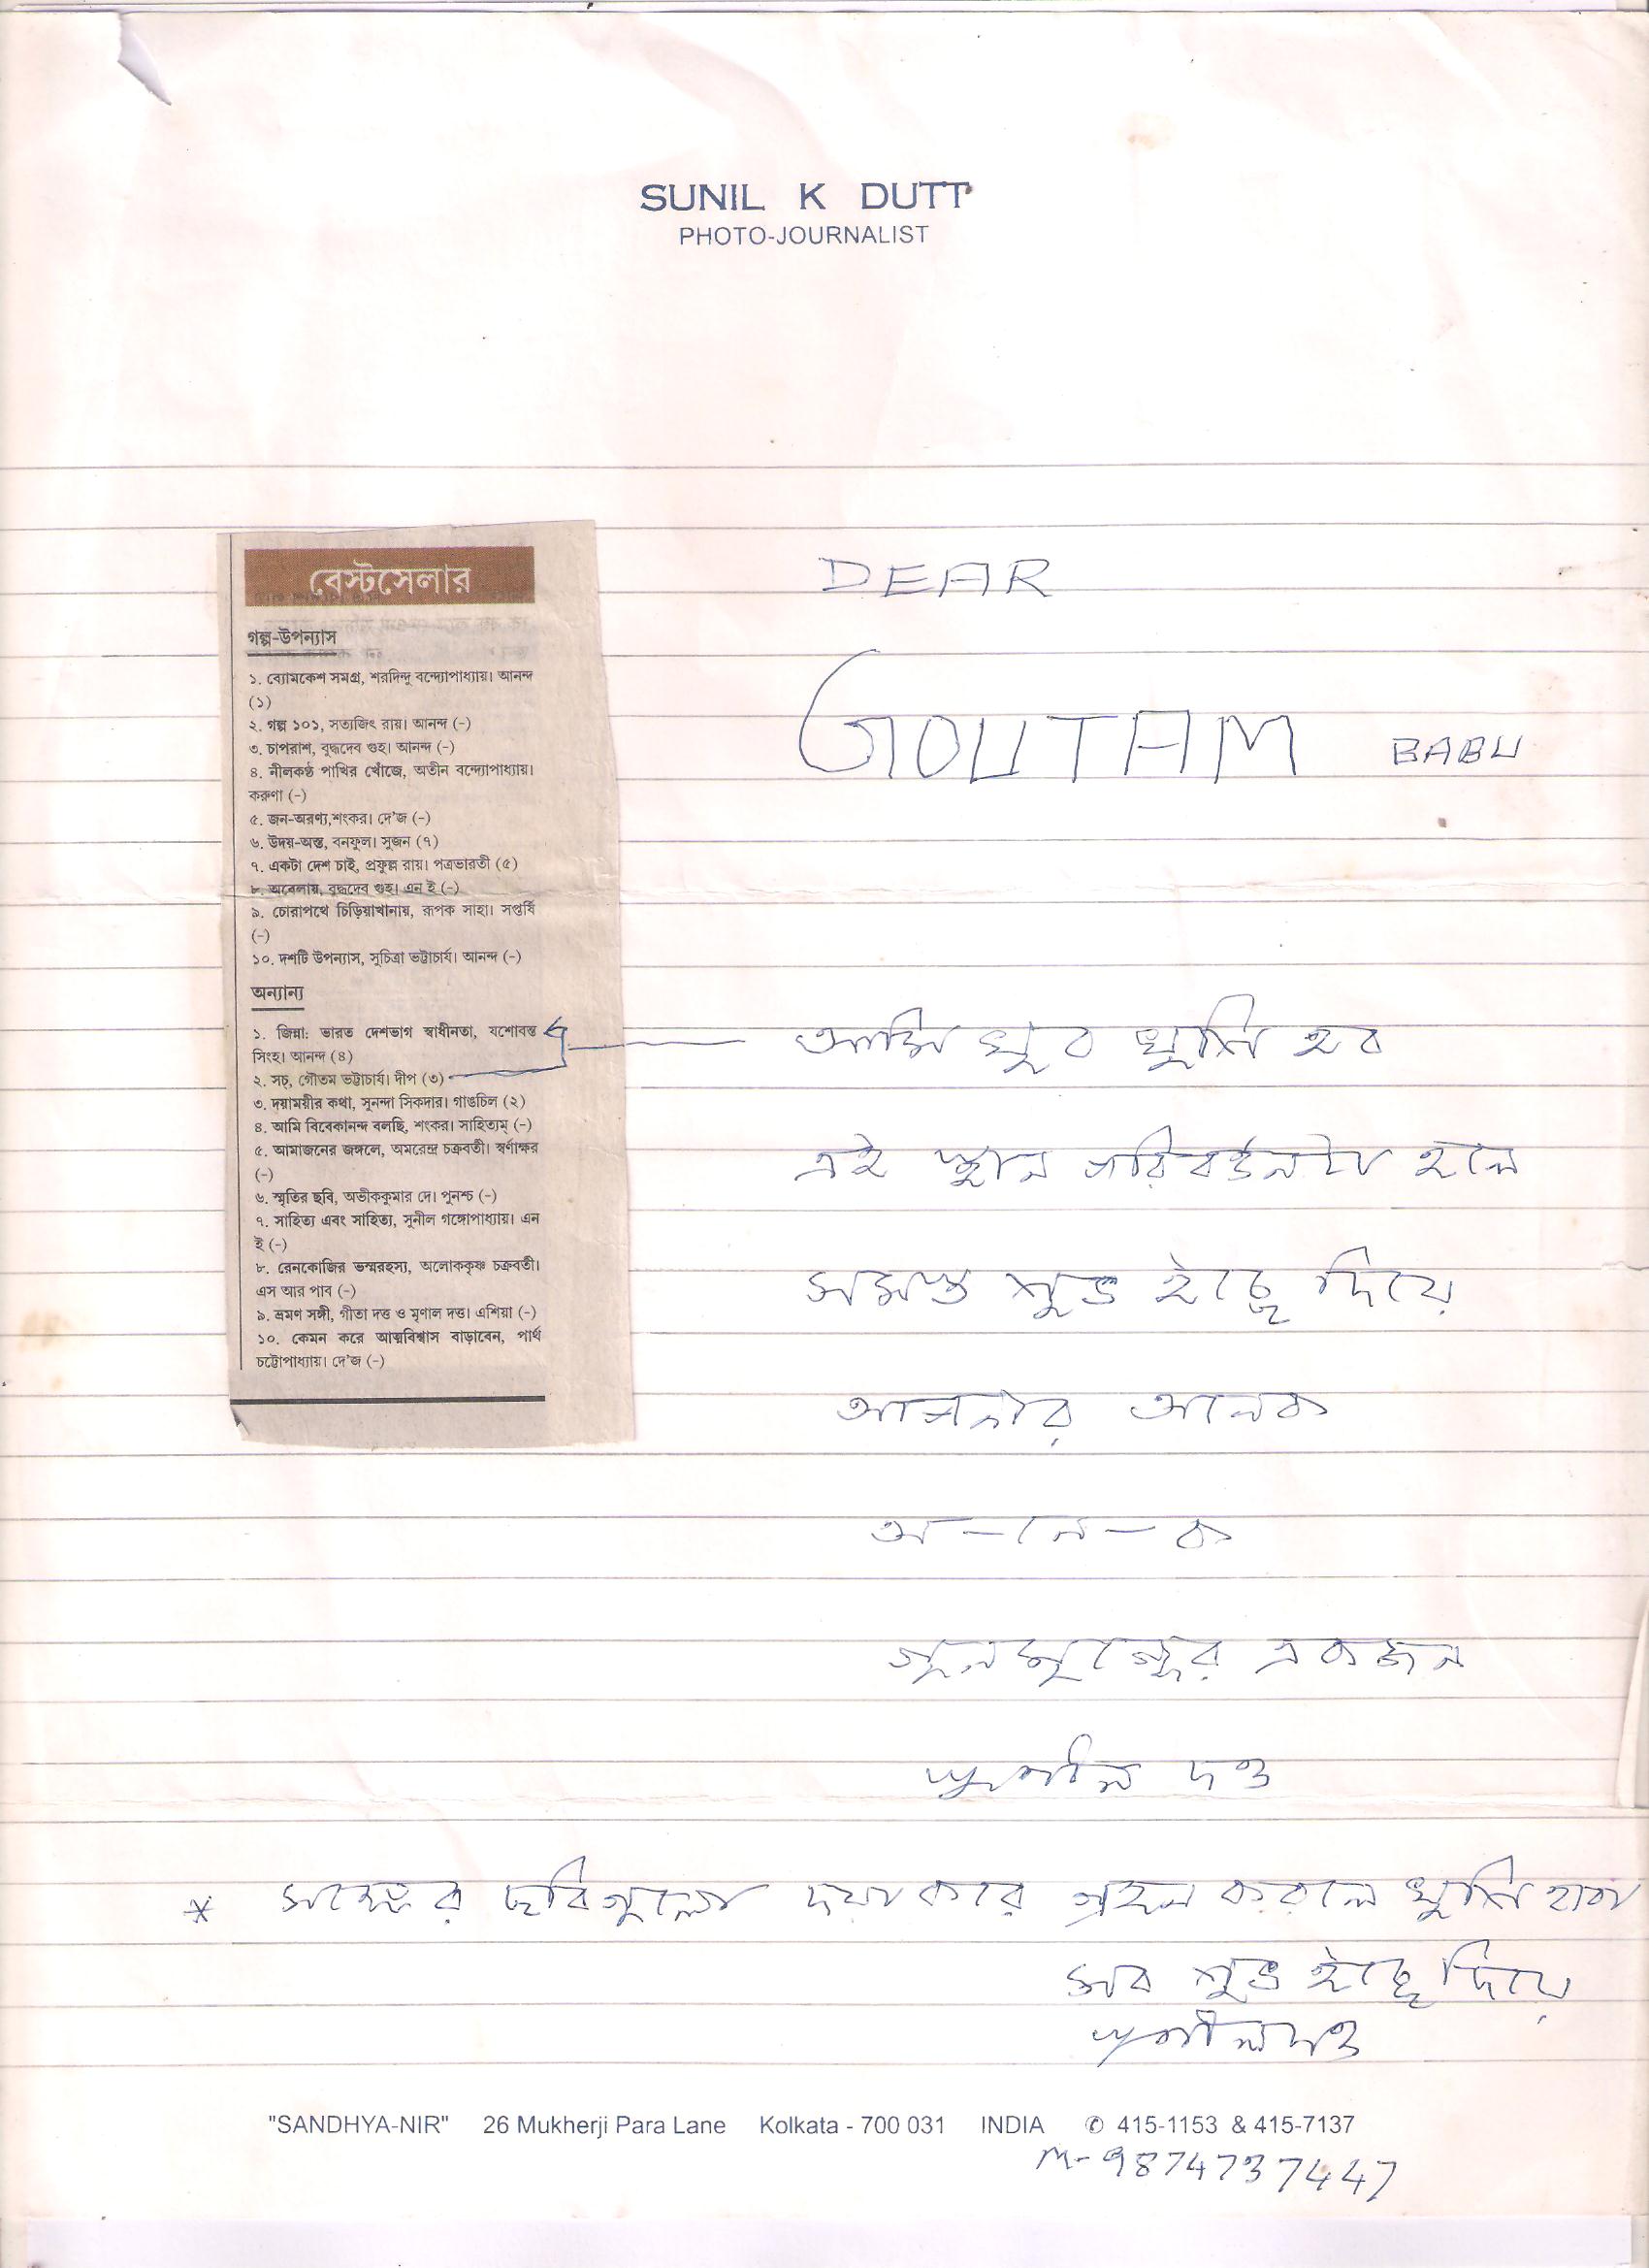 SUNIL K DUTT
PHOTO-JOURNALIST
বেস্টসেলার
গল্প-উপন্যাস
১. ব্যোমকেশ সমগ্র, শরদিন্দু বন্দ্যোপাধ্যায়। আনন্দ
(১)
২. গল্প ১০১, সত্যজিৎ রায়। আনন্দ (-)
৩. চাপরাশ, বুদ্ধদেব গুহ। আনন্দ (-)
৪. নীলকণ্ঠ পাখির খোঁজে, অতীন বন্দ্যোপাধ্যায়।
করুণা (-)
৫. জন-অরণ্য,শংকর। দে'জ (-)
৬. উদয়-অস্ত, বনফুল। সুজন (৭)
৭. একটা দেশ চাই, প্রফুল্ল রায়। পত্রভারতী (৫)
৮. অবেলায়, বুদ্ধদেব গুহ। এন ই (-)
৯. চোরাপথে চিড়িয়াখানায়, রূপক সাহা। সপ্তর্ষি
(-)
১০. দশটি উপন্যাস, সুচিত্রা ভট্টাচার্য। আনন্দ (-)
অন্যান্য
১. জিন্না: ভারত দেশভাগ স্বাধীনতা, যশোবন্ত
সিংহ। আনন্দ (৪)
২. সচ্, গৌতম ভট্টাচার্য। দীপ (৩)
৩. দয়াময়ীর কথা, সুনন্দা সিকদার। গাঙচিল (২)
৪. আমি বিবেকানন্দ বলছি, শংকর। সাহিত্যম্ (-)
৫. আমাজনের জঙ্গলে, অমরেন্দ্র চক্রবর্তী। স্বর্ণাক্ষর
(-)
৬. স্মৃতির ছবি, অভীককুমার দে। পুনশ্চ (-)
৭. সাহিত্য এবং সাহিত্য, সুনীল গঙ্গোপাধ্যায়। এন
ই (-)
৮. রেনকোজির ভস্মরহস্য, অলোককৃষ্ণ চক্রবর্তী।
এস আর পাব (-)
৯. ভ্রমণ সঙ্গী, গীতা দত্ত ও মৃণাল দত্ত। এশিয়া (-)
১০. কেমন করে আত্মবিশ্বাস বাড়াবেন, পার্থ
চট্টোপাধ্যায়। দে'জ (-)
DEAR
GOUTAM BABU
আমি খুব খুশি হব
এই স্থান পরিবর্তনটা হলে
সমস্ত শুভ ইচ্ছে দিয়ে
আপনার অনেক
অ-নে-ক
গুনমুগ্ধের একজন
সুনীল দত্ত
* সঙ্গের ছবিগুলো দয়া করে গ্রহন করলে খুশি হবো
সব শুভ ইচ্ছে দিয়ে
সুনীল দত্ত
"SANDHYA-NIR" 26 Mukherji Para Lane Kolkata - 700 031 INDIA ✆ 415-1153 & 415-7137
M- 9874737447